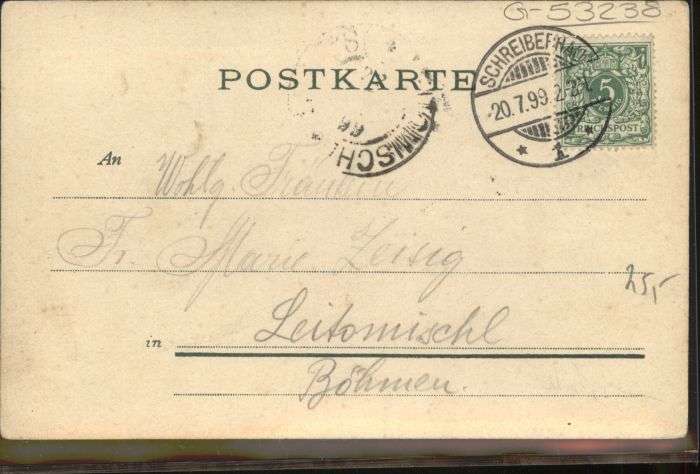 G-53238
POSTKARTE
SCHREIBERHAU
20.7.99. 2-3N.
1
5
REICHSPOST
An
Wohlg. Fräulein
Fr. Marie Zeisig
25,-
in Leitomischl
Böhmen.